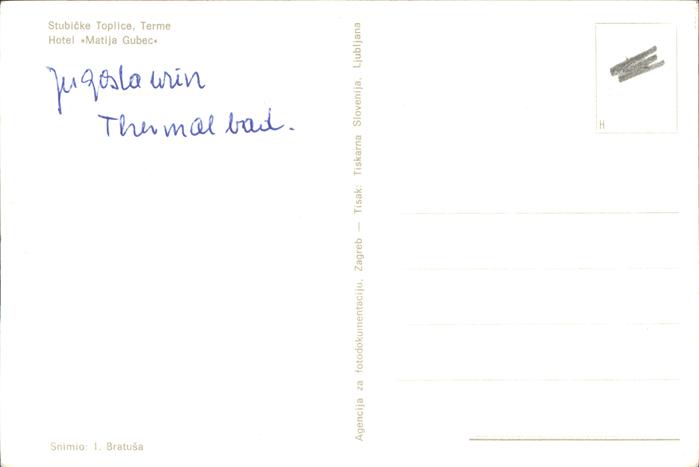 Stubičke Toplice, Terme
Hotel »Matija Gubec«
Jugoslawin
Thermal bad.
Agencija za fotodokumentaciju, Zagreb — Tisak: Tiskarna Slovenija, Ljubljana
H
Snimio: I. Bratuša